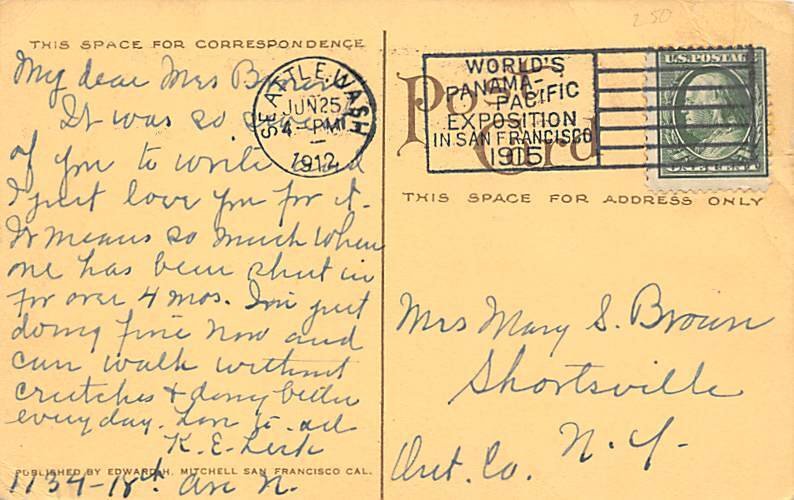 2 50
THIS SPACE FOR CORRESPONDENCE
My dear Mrs Brown
It was so
of you to write and
I just love you for it.
It means so much when
one has been shut in
for over 4 mos. I'm just
doing fine now and
can walk without
crutches & doing better
everyday. Love to all
K. E.
1134-18th Ave N.
PUBLISHED BY EDWARD H. MITCHELL SAN FRANCISCO CAL.
SEATTLE, WASH
JUN 25
4-PM
1912
WORLD'S
PANAMA-
PACIFIC
EXPOSITION
IN SAN FRANCISCO
1915
Post
Card
U.S. POSTAGE
THIS SPACE FOR ADDRESS ONLY
Mrs Mary S. Brown
Shortsville
Ont. Co. N.Y.